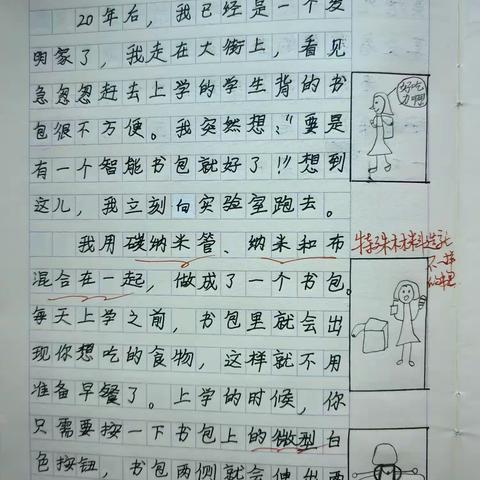 20年后，我已经是一个发
明家了，我走在大街上，看见
急忽忽赶去上学的学生背的书
包很不方便。我突然想："要是
有一个智能书包就好了！"想到
这儿，我立刻向实验室跑去。
我用碳纳米管、纳米和布
混合在一起，做成了一个书包。
每天上学之前，书包里就会出
现你想吃的食物，这样就不用
准备早餐了。上学的时候，你
只需要按一下书包上的微型白
色按钮，书包两侧就会伸出两
好吃
力啊
特殊材料
不一样